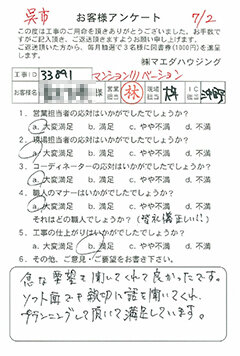 呉市 お客様アンケート 7/2
この度は工事のご用命を頂きありがとうございました。お手数で
すがご記入頂き、ご返送頂きますようお願い申し上げます。
ご返送頂いた方から、毎月抽選で3名様に図書券(1000円)を進呈
します。
㈱マエダハウジング
工事ID 33891 マンションリノベーション
お客様名 様 営業担当 林 現場担当 IC担当
1. 営業担当者の応対はいかがでしたでしょうか?
a. 大変満足 b. 満足 c. やや不満 d. 不満
2. 現場担当者の応対はいかがでしたでしょうか?
a. 大変満足 b. 満足 c. やや不満 d. 不満
3. コーディネーターの応対はいかがでしたでしょうか?
a. 大変満足 b. 満足 c. やや不満 d. 不満
4. 職人のマナーはいかがでしたでしょうか?
a. 大変満足 b. 満足 c. やや不満 d. 不満
それはどの職人でしょうか?(皆礼儀正しい!!)
5. 工事の仕上がりはいかがでしたでしょうか?
a. 大変満足 b. 満足 c. やや不満 d. 不満
6. その他、ご意見・ご要望をお書き下さい。
急な要望も聞いてくれて良かったです。
ソフト面でも親切に話を聞いてくれ、
プランニングして頂いて満足しています。